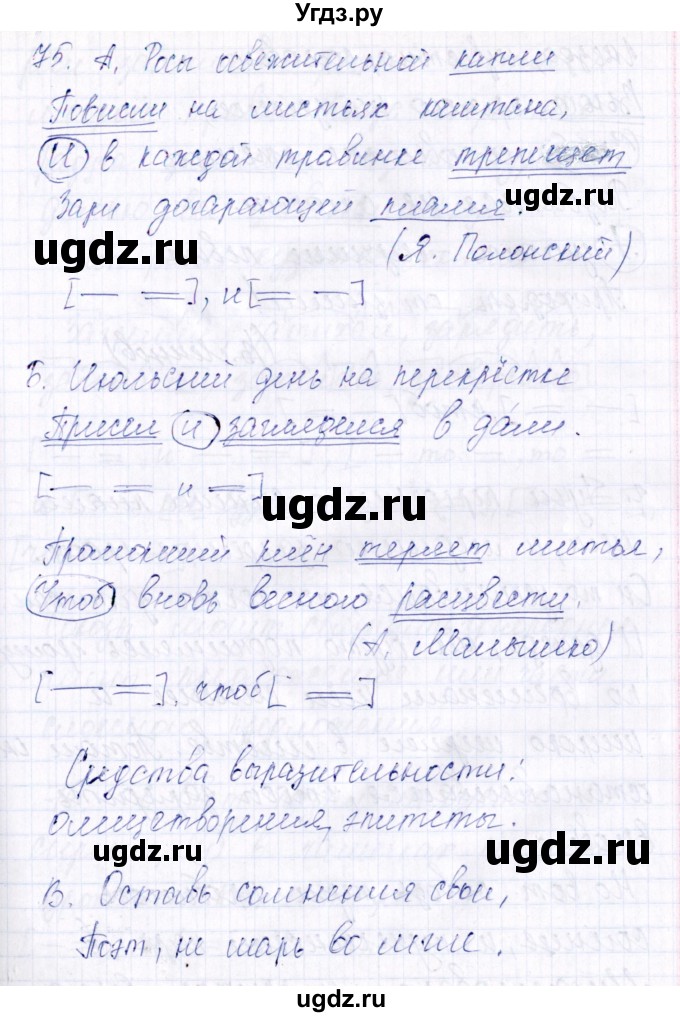 Угдз.ру
75. А. Росы освежительной капли
Повисли на листьях каштана,
И в каждой травинке трепещет
ugdz.ru
Зари догорающей пламя.
ugdz.ru
(Я. Полонский)
[— =], и [= —]
Б. Июльский день на перекрёстке
Присел и загляделся в дали.
[— = и =]
ugdz.ru
Промокший клён теряет листья,
Чтоб вновь весною расцвести.
(А. Малышко)
[— =], чтоб [ =]
Средства выразительности:
олицетворения, эпитеты.
ugdz.ru
ugdz.ru
В. Оставь сомнения свои,
Поэт, не шарь во мгле.
ugdz.ru